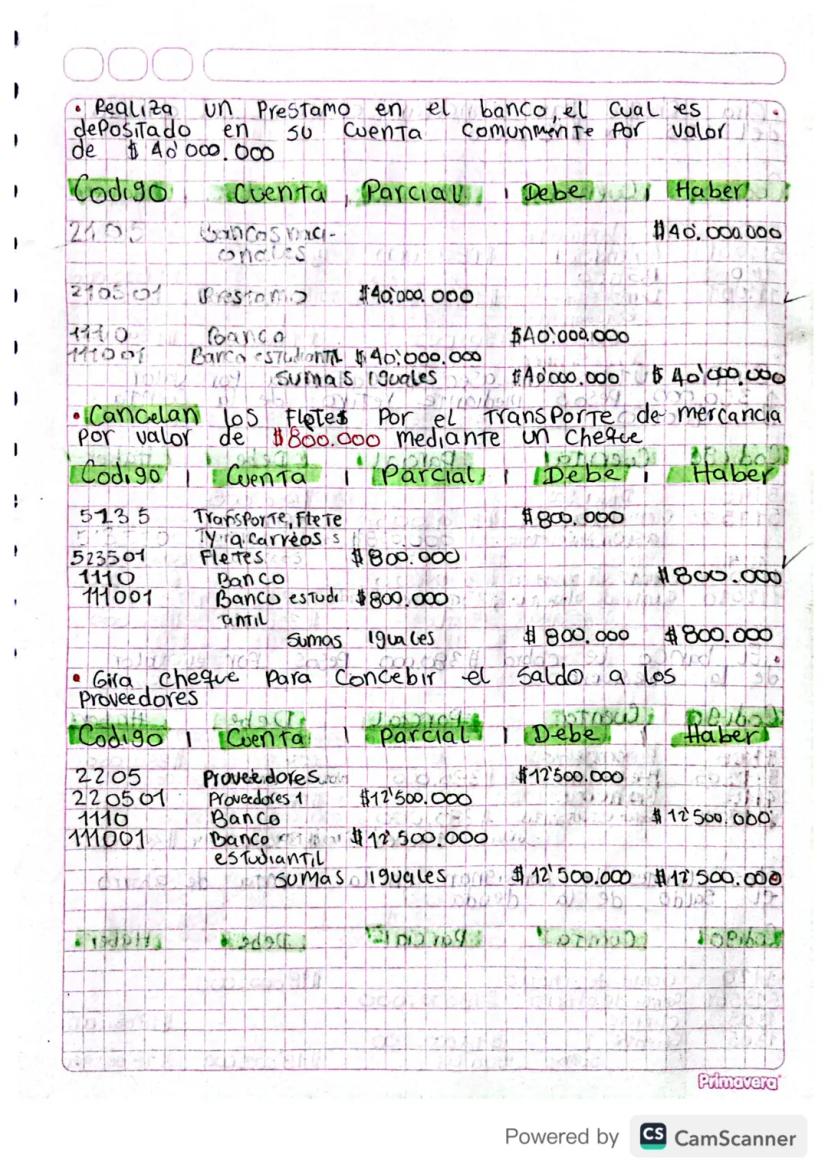 • Realiza un Prestamo en el banco, el cual es
depositado en su cuenta comunmnte por valor
de $ 40'000.000
Codigo | Cuenta | Parcial | Debe | Haber
2105 Bancos naci- $40.000.000
onales
210501 Prestamo $40'000.000
1110 Banco $40'000.000
111001 Banco estudiantil $40'000.000
sumas iguales $40'000.000 $40'000.000
• Cancelan los fletes por el transporte de mercancia
por valor de $800.000 mediante un cheque
Codigo | Cuenta | Parcial | Debe | Haber
5135 Transporte, flete $800.000
y acarreos
523501 Fletes $800.000
1110 Banco $800.000
111001 Banco estudi $800.000
antil
sumas iguales $800.000 $800.000
• Gira cheque para concebir el saldo a los
Proveedores
Codigo | Cuenta | Parcial | Debe | Haber
2205 Proveedores $12'500.000
220501 Proveedores 1 $12'500.000
1110 Banco $12'500.000
111001 Banco $12'500.000
estudiantil
sumas iguales $12'500.000 $12'500.000
Primavera
Powered by CS CamScanner